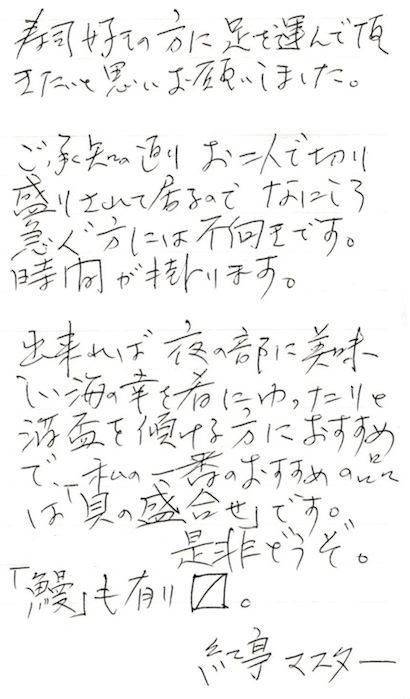 寿司好きの方に足を運んで頂
きたいと思いお願いしました。
ご承知の通り お二人で切り
盛りされて居るので なにしろ
急ぐ方には不向きです。
時間が掛ります。
出来れば 夜の部に美味
しい海の幸を肴にゆったりと
酒盃を傾ける方におすすめ
で、私の一番のおすすめの品
は「貝の盛合せ」です。
是非どうぞ。
「鰻」も有り〼。
紅亭 マスター